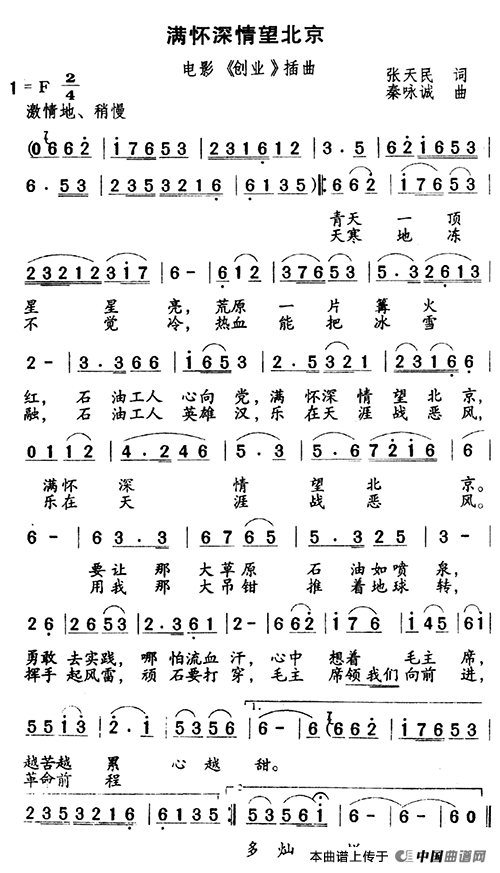 满怀深情望北京
电影《创业》插曲
张天民 词
1=F 2/4
秦咏诚 曲
激情地、稍慢
(0662 | 17653 | 2231 | 231612 | 3·5 | 621653 |
6·53 | 2353216 | 6135) ‖: 662 | 17653 |
青天 一顶
天寒 地冻
23212317 | 6- | 612 | 37653 | 5·32613 |
星星亮，荒原一片篝火
不觉冷，热血能把冰雪
2- | 3·366 | 1653 | 2·5321 | 2353 | 23166 |
红，石油工人心向党，满怀深情望北京，
融，石油工人英雄汉，乐在天涯战恶风，
0112 | 4·246 | 5·35 | 5·67216 | 6 |
满怀深情望北京。
乐在天涯战恶风。
6- | 63·3 | 6765 | 5·325 | 3- |
要让那大草原石油如喷泉，
用我那大吊钳推着地球转，
26 | 2653 | 2·361 | 2- | 662 | 176 | 145 | 61 |
勇敢去实践，哪怕流血汗，心中想着毛主席，
挥手起风雷，顽石要打穿，毛主席领我们向前进，
5513 | 2·1 | 5356 | 6- | 6662 | 17653 |
越苦越累心越甜。
革命前程
2353216 | 6135 :‖ 53561 | 6- | 6- | 60 ‖
多灿
本曲谱上传于 中国曲谱网